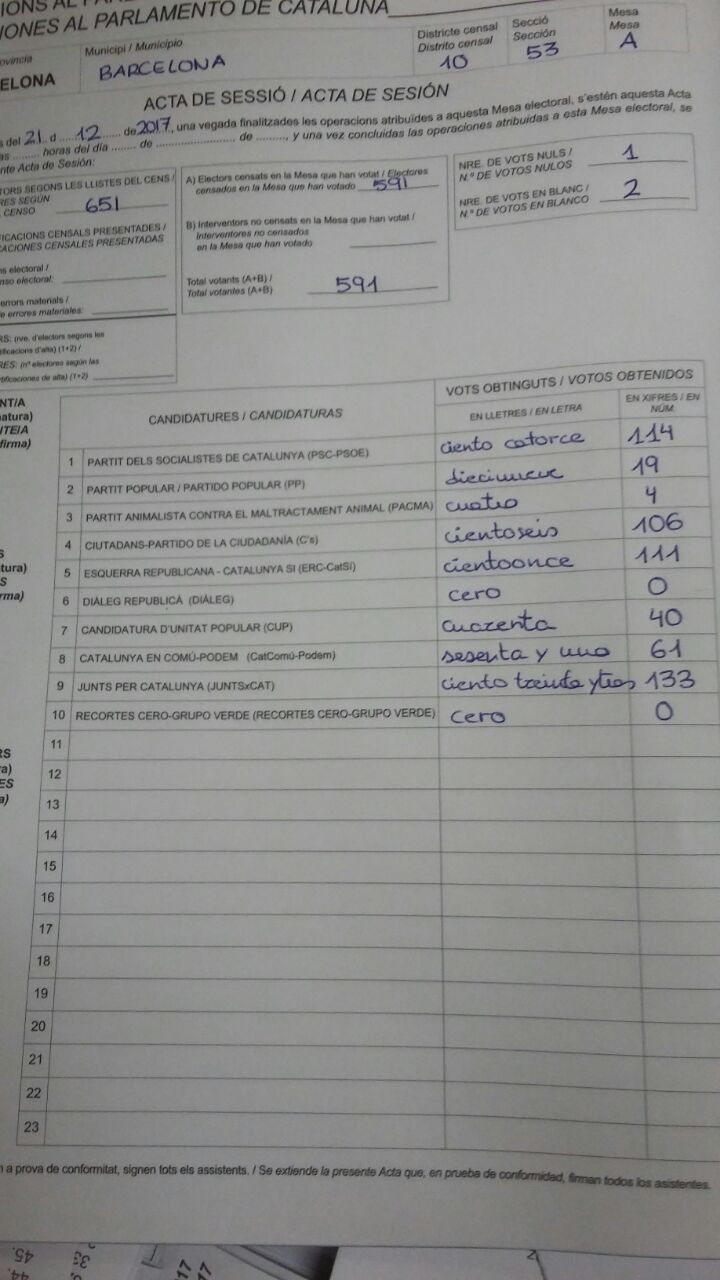 IONES AL PARLAMENTO DE CATALUÑA
ovincia
ELONA
Municipi / Municipio
BARCELONA
Districte censal
Distrito censal
10
Secció
Sección
53
Mesa
Mesa
A
ACTA DE SESSIÓ / ACTA DE SESIÓN
s del 21, d 12 de 2017, una vegada finalitzades les operacions atribuïdes a aquesta Mesa electoral, s'estén aquesta Acta
as ........ horas del día ........ de ........................ de ........, y una vez concluidas las operaciones atribuidas a esta Mesa electoral, se
nte Acta de Sesión:
TORS SEGONS LES LLISTES DEL CENS /
RES SEGÚN
CENSO 651
FICACIONS CENSALS PRESENTADES /
ACIONES CENSALES PRESENTADAS
ns electoral /
nso electoral:
errors materials /
e errores materiales:
RS: (nre. d'electors segons les
tificacions d'alta) (1+2) /
RES: (nº electores según las
rtificaciones de alta) (1+2)
A) Electors censats en la Mesa que han votat / Electores
censados en la Mesa que han votado 591
B) Interventors no censats en la Mesa que han votat /
Interventores no censados
en la Mesa que han votado
Total votants (A+B) /
Total votantes (A+B) 591
NRE. DE VOTS NULS /
N.º DE VOTOS NULOS 1
NRE. DE VOTS EN BLANC /
N.º DE VOTOS EN BLANCO 2
NT/A
natura)
ITE/A
firma)
CANDIDATURES / CANDIDATURAS
VOTS OBTINGUTS / VOTOS OBTENIDOS
EN LLETRES / EN LETRA
EN XIFRES / EN
NÚM.
1 PARTIT DELS SOCIALISTES DE CATALUNYA (PSC-PSOE) ciento catorce 114
2 PARTIT POPULAR / PARTIDO POPULAR (PP) diecinueve 19
3 PARTIT ANIMALISTA CONTRA EL MALTRACTAMENT ANIMAL (PACMA) cuatro 4
4 CIUTADANS-PARTIDO DE LA CIUDADANÍA (C's) cientoseis 106
5 ESQUERRA REPUBLICANA - CATALUNYA SI (ERC-CatSí) cientoonce 111
6 DIÀLEG REPUBLICÀ (DIÀLEG) cero 0
7 CANDIDATURA D'UNITAT POPULAR (CUP) cuarenta 40
8 CATALUNYA EN COMÚ-PODEM (CatComú-Podem) sesenta y uno 61
9 JUNTS PER CATALUNYA (JUNTSxCAT) ciento treinta y tres 133
10 RECORTES CERO-GRUPO VERDE (RECORTES CERO-GRUPO VERDE) cero 0
11
12
13
14
15
16
17
18
19
20
21
22
23
S
tura)
S
rma)
RS
ra)
ES
a)
n a prova de conformitat, signen tots els assistents. / Se extiende la presente Acta que, en prueba de conformidad, firman todos los asistentes.
45.
44.
17
17